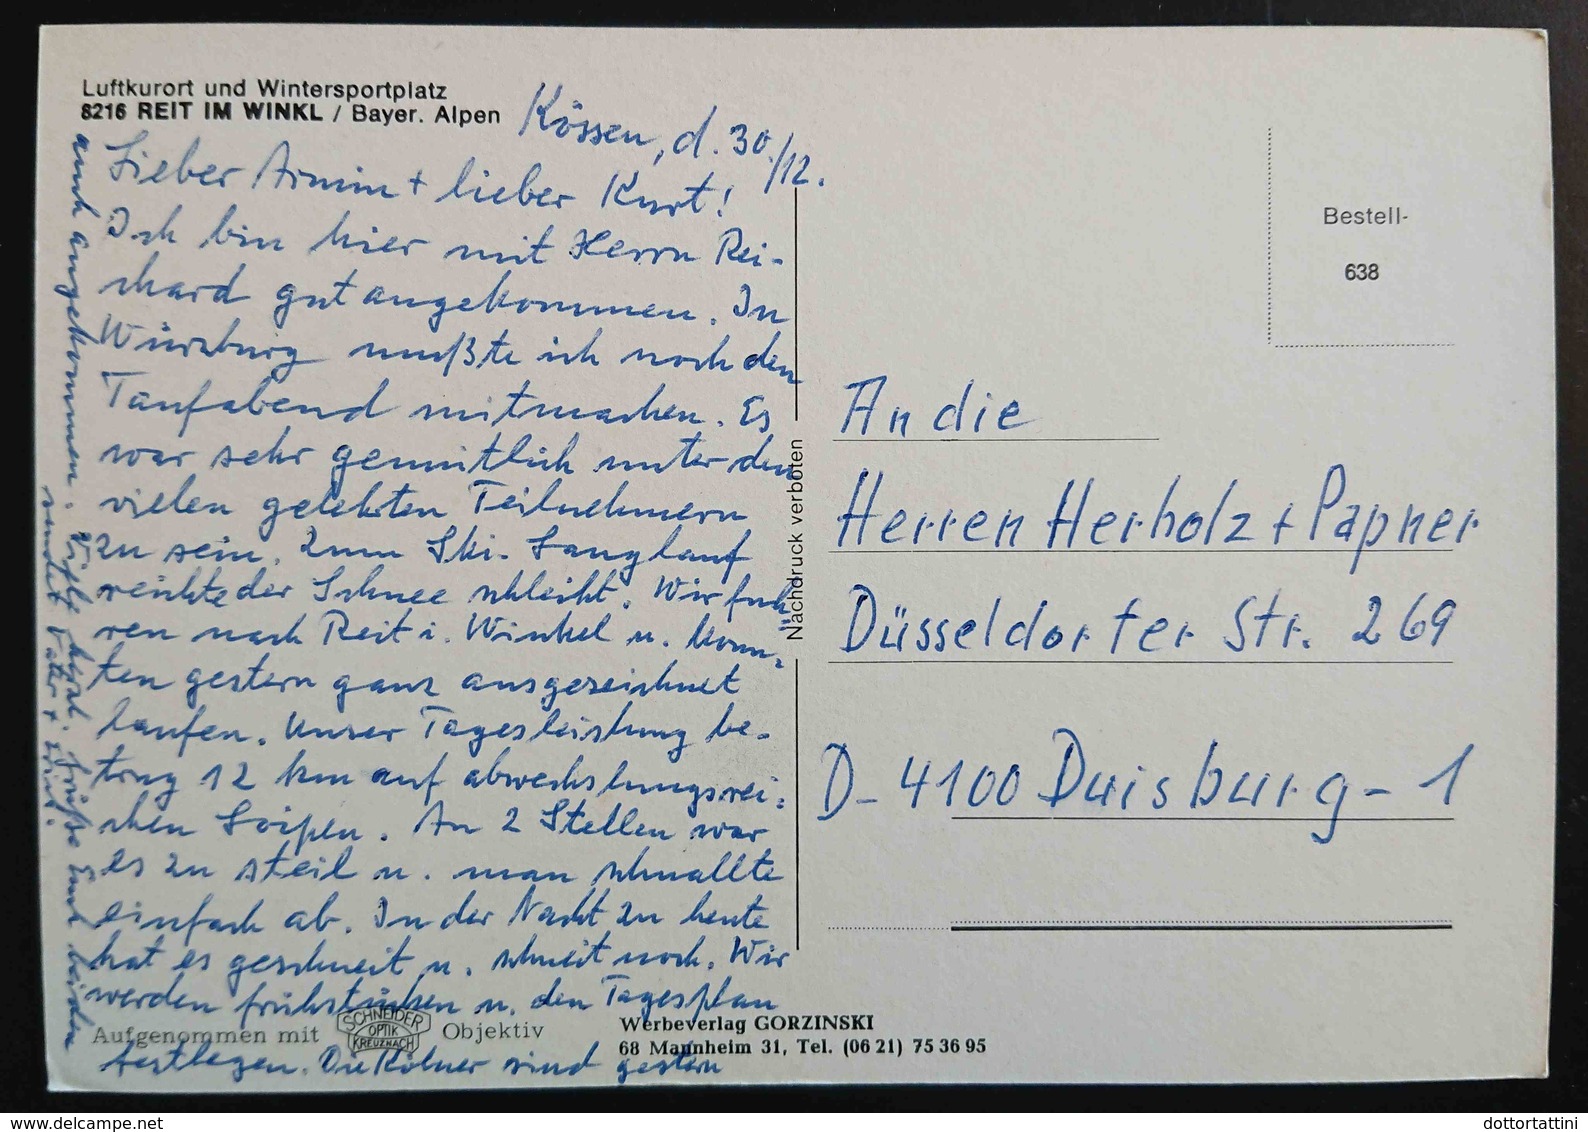 Luftkurort und Wintersportplatz
8216 REIT IM WINKL / Bayer. Alpen
Kössen, d. 30./12.
Lieber Armin + lieber Kurt!
Ich bin hier mit Herrn Rei-
chard gut angekommen. In
Würzburg mußte ich noch den
Taufabend mitmachen. Es
war sehr gemütlich unter den
vielen gelebten Teilnehmern
zu sein. Zum Ski-Langlauf
reichte der Schnee schlecht. Wir fuh-
ren nach Reit i. Winkel u. konn-
ten gestern ganz ausgezeichnet
laufen. Unser Tagesleistung be-
trug 12 km auf abwechslungsrei-
chen Loipen. An 2 Stellen war
es zu steil u. man schnallte
einfach ab. In der Nacht zu heute
hat es geschneit u. schneit noch. Wir
werden frühstücken u. den Tagesplan
festlegen. Die Kölner sind gestern
auch angekommen. Viele herzl. Grüße Euch beiden
sendet Vater +
Aufgenommen mit
SCHNEIDER
OPTIK
KREUZNACH
Objektiv
Werbeverlag GORZINSKI
68 Mannheim 31, Tel. (06 21) 75 36 95
Nachdruck verboten
Bestell-
638
An die
Herren Herholz + Papner
Düsseldorfer Str. 269
D-4100 Duisburg-1
dottortattini